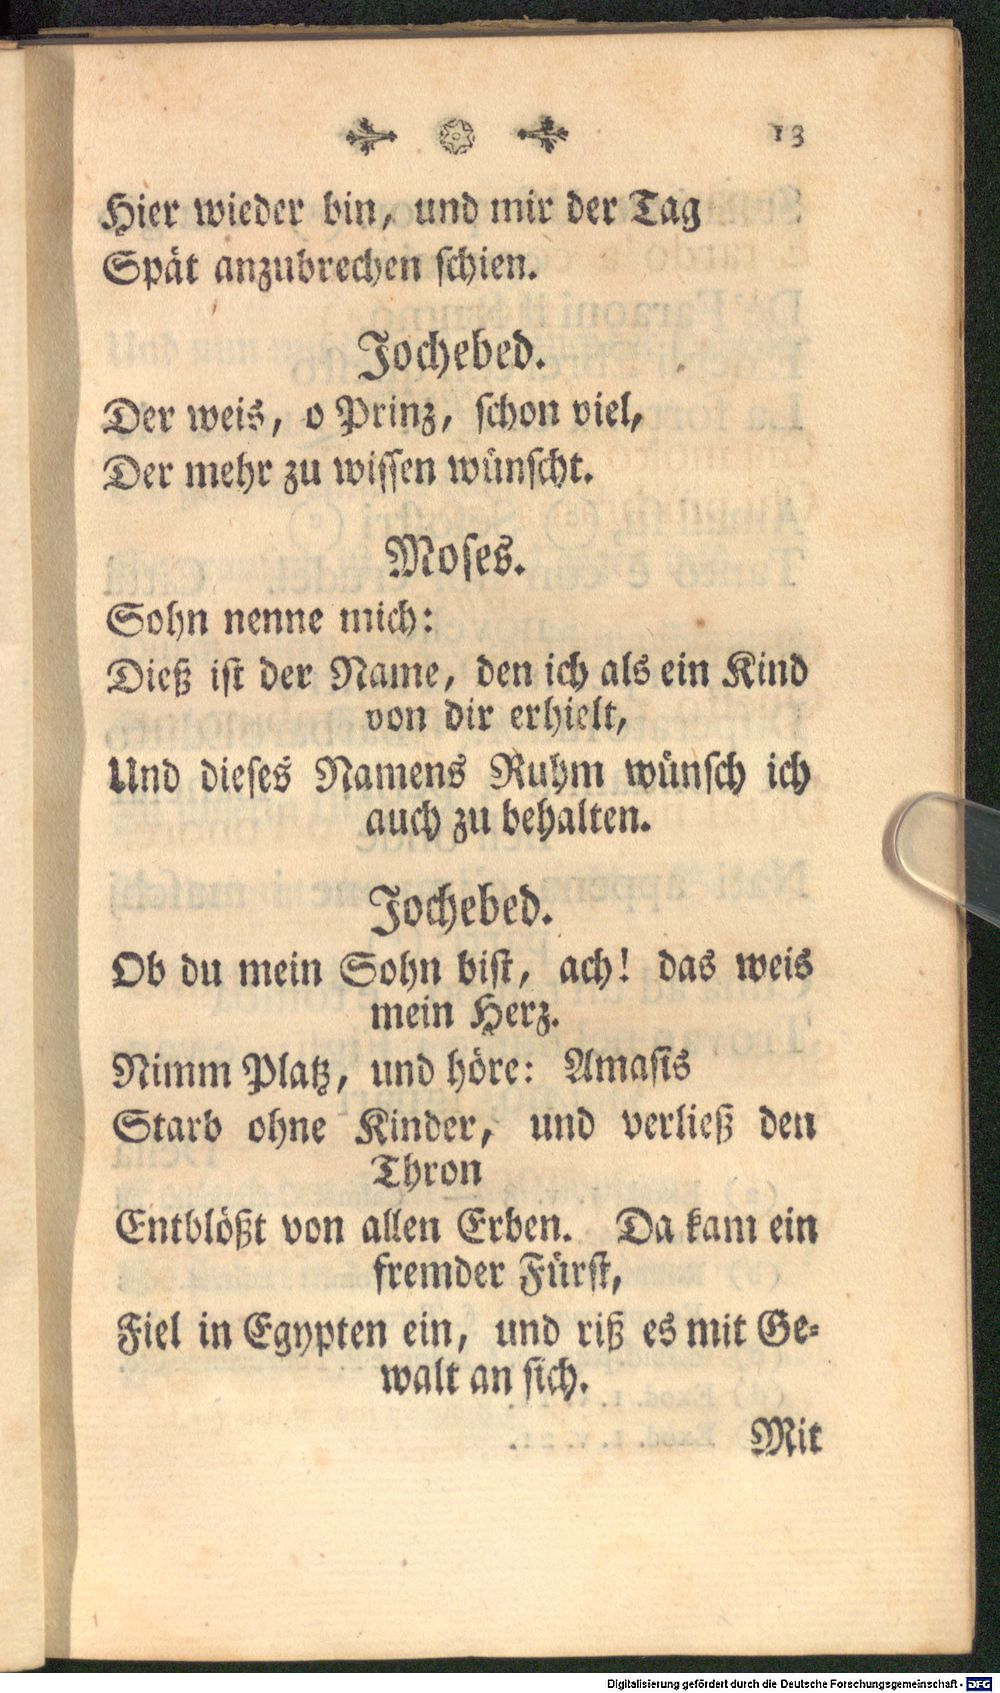 13
Hier wieder bin, und mir der Tag
Spät anzubrechen schien.
Jochebed.
Der weis, o Prinz, schon viel,
Der mehr zu wissen wünscht.
Moses.
Sohn nenne mich:
Dieß ist der Name, den ich als ein Kind
von dir erhielt,
Und dieses Namens Ruhm wünsch ich
auch zu behalten.
Jochebed.
Ob du mein Sohn bist, ach! das weis
mein Herz.
Nimm Platz, und höre: Amasis
Starb ohne Kinder, und verließ den
Thron
Entblößt von allen Erben. Da kam ein
fremder Fürst,
Fiel in Egypten ein, und riß es mit Ge-
walt an sich.
Mit
Digitalisierung gefördert durch die Deutsche Forschungsgemeinschaft - DFG